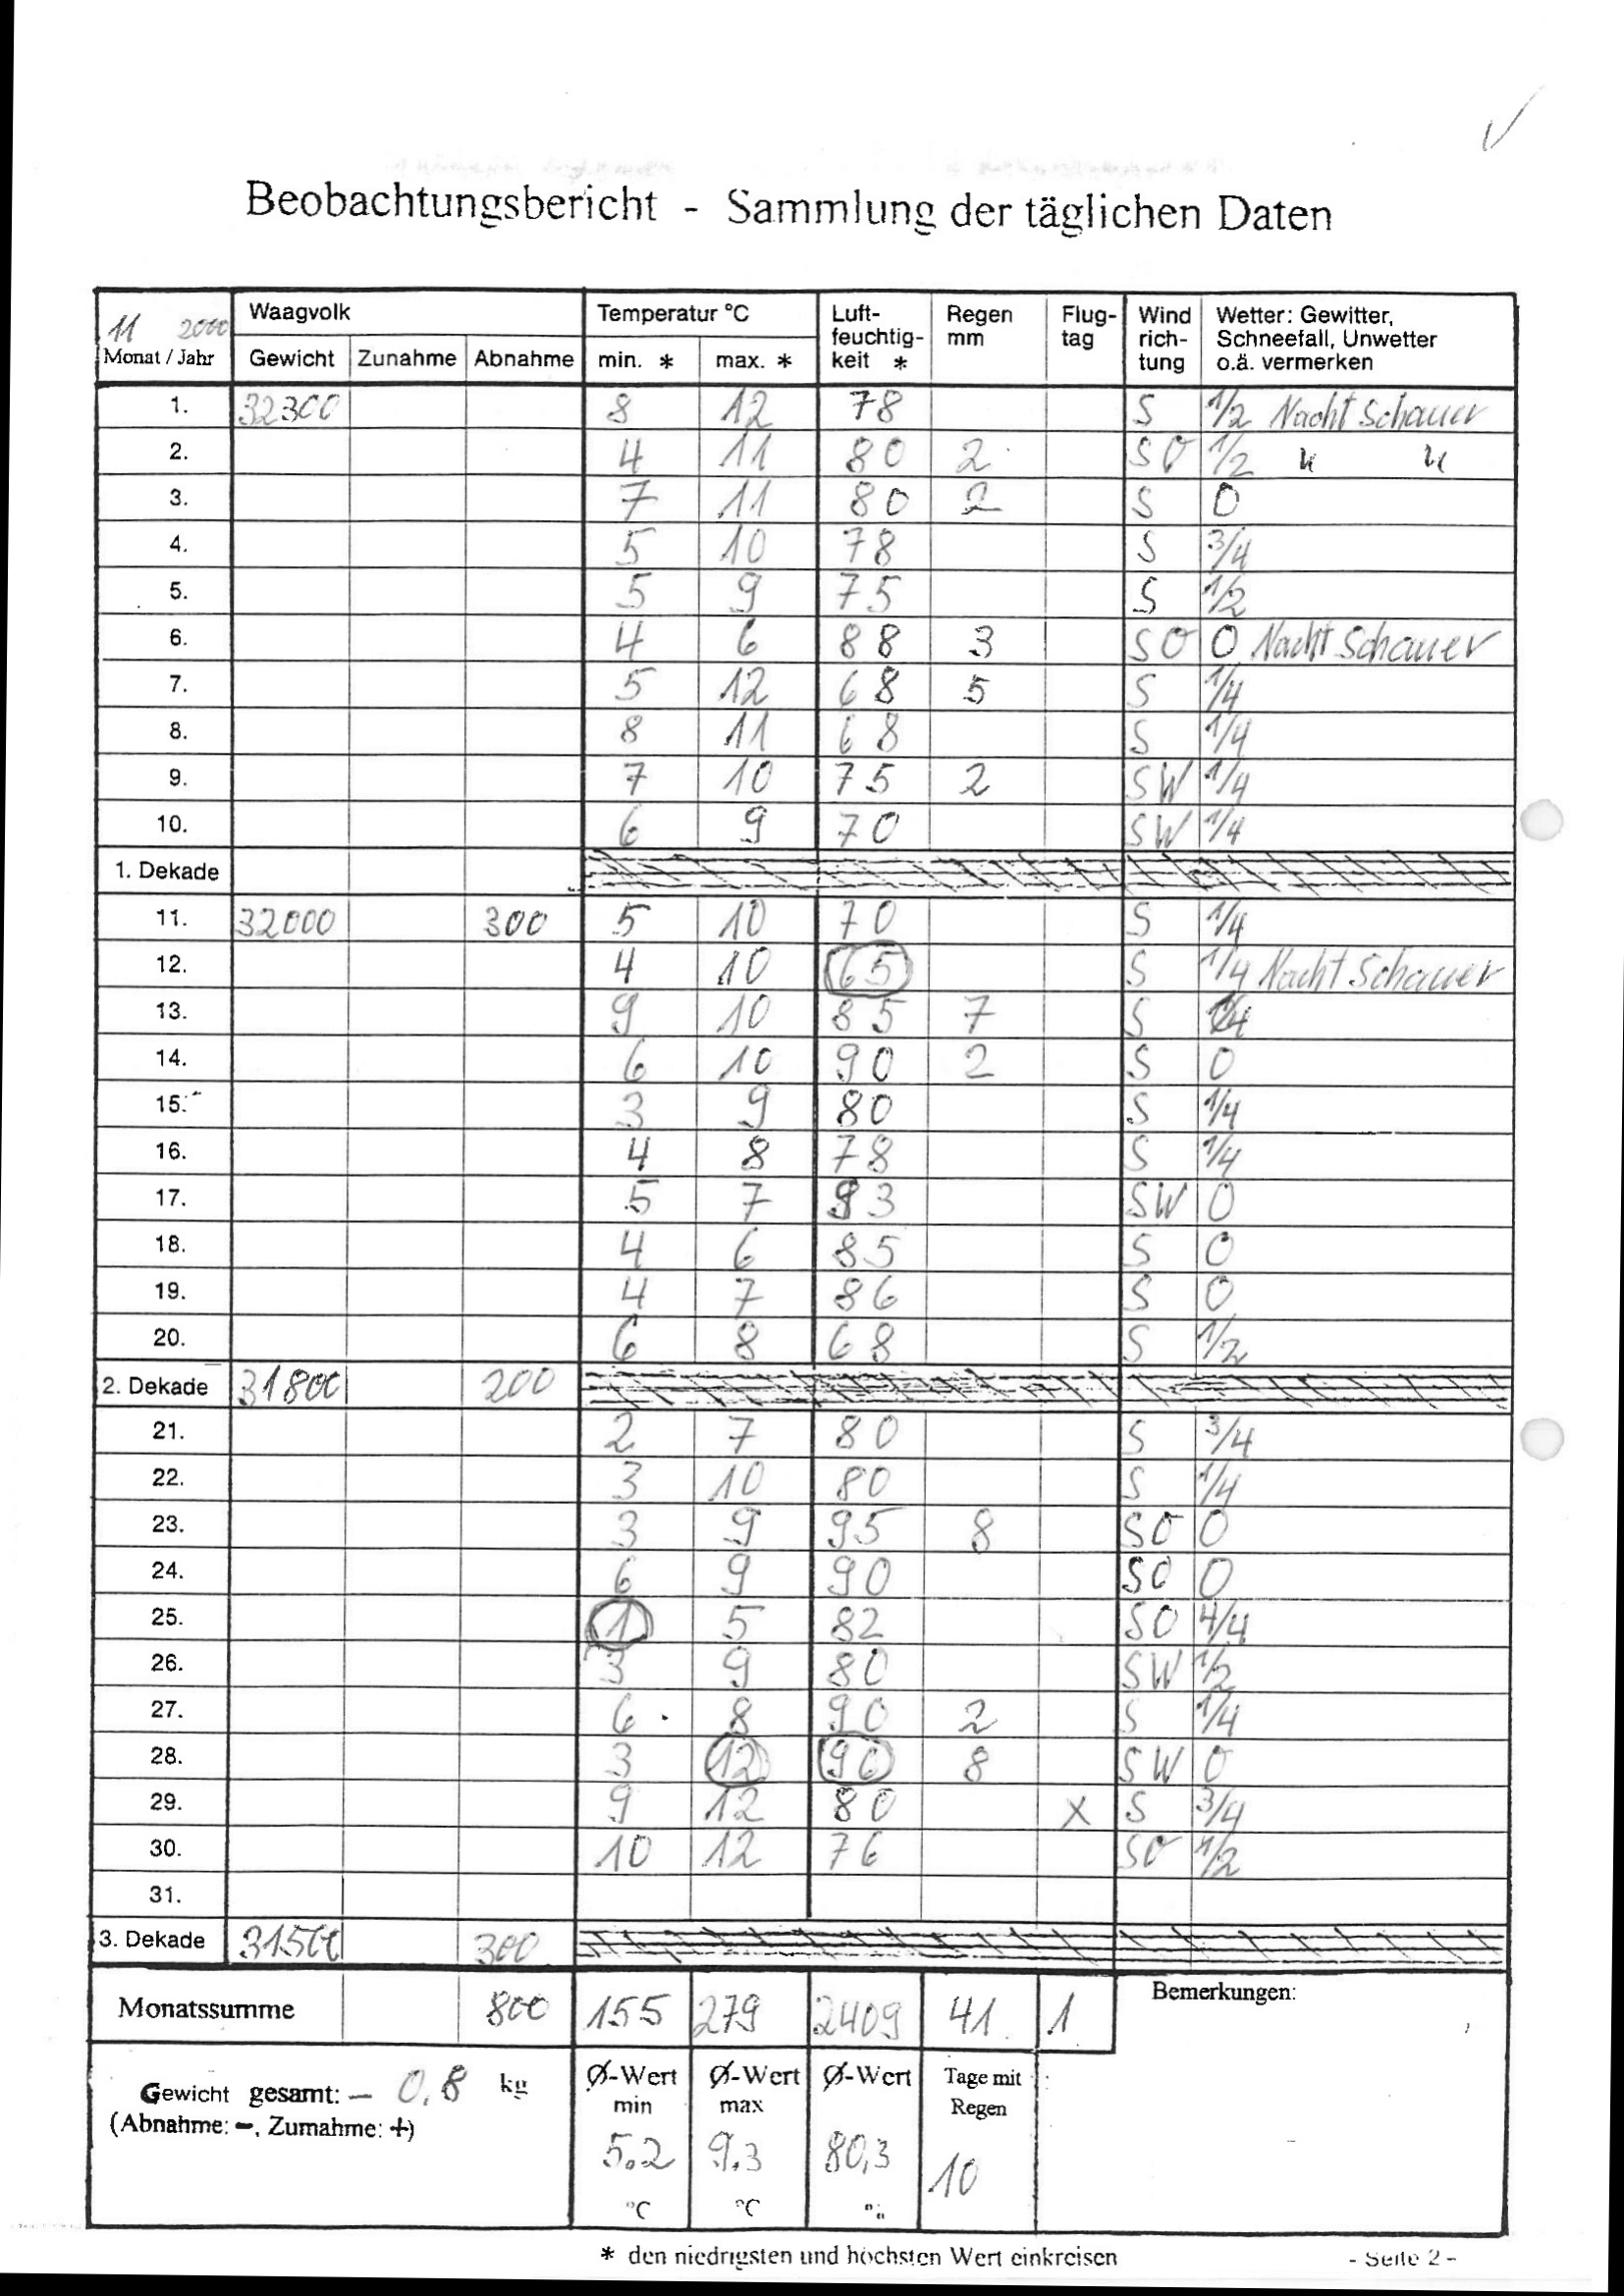 Beobachtungsbericht - Sammlung der täglichen Daten
11 2000 Waagvolk Temperatur °C Luft- Regen Flug- Wind Wetter: Gewitter,
feuchtig- mm tag rich- Schneefall, Unwetter
Monat / Jahr Gewicht Zunahme Abnahme min. * max. * keit * tung o.ä. vermerken
1. 32300 8 12 78 S 1/2 Nacht Schauer
2. 4 11 80 2 SO 1/2 " "
3. 7 11 80 2 S 0
4. 5 10 78 S 3/4
5. 5 9 75 S 1/2
6. 4 6 88 3 SO 0 Nacht Schauer
7. 5 12 68 5 S 1/4
8. 8 11 68 S 1/4
9. 7 10 75 2 SW 1/4
10. 6 9 70 SW 1/4
1. Dekade
11. 32000 300 5 10 70 S 1/4
12. 4 10 65 S 1/4 Nacht Schauer
13. 9 10 85 7 S 1/4
14. 6 10 90 2 S 0
15. 3 9 80 S 1/4
16. 4 8 78 S 1/4
17. 5 7 83 SW 0
18. 4 6 85 S 0
19. 4 7 86 S 0
20. 6 8 68 S 1/2
2. Dekade 31800 200
21. 2 7 80 S 3/4
22. 3 10 80 S 1/4
23. 3 9 95 8 SO 0
24. 6 9 90 SO 0
25. 1 5 82 SO 4/4
26. 3 9 80 SW 1/2
27. 6 8 90 2 S 1/4
28. 3 12 96 8 SW 0
29. 9 12 80 X S 3/4
30. 10 12 76 SO 1/2
31.
3. Dekade 31500 300
Monatssumme 800 155 279 2409 41 1 Bemerkungen:
Gewicht gesamt: - 0,8 kg Ø-Wert Ø-Wert Ø-Wert Tage mit
(Abnahme: -, Zumahme: +) min max Regen
5.2 9.3 80,3 10
°C °C %
* den niedrigsten und höchsten Wert einkreisen - Seite 2 -